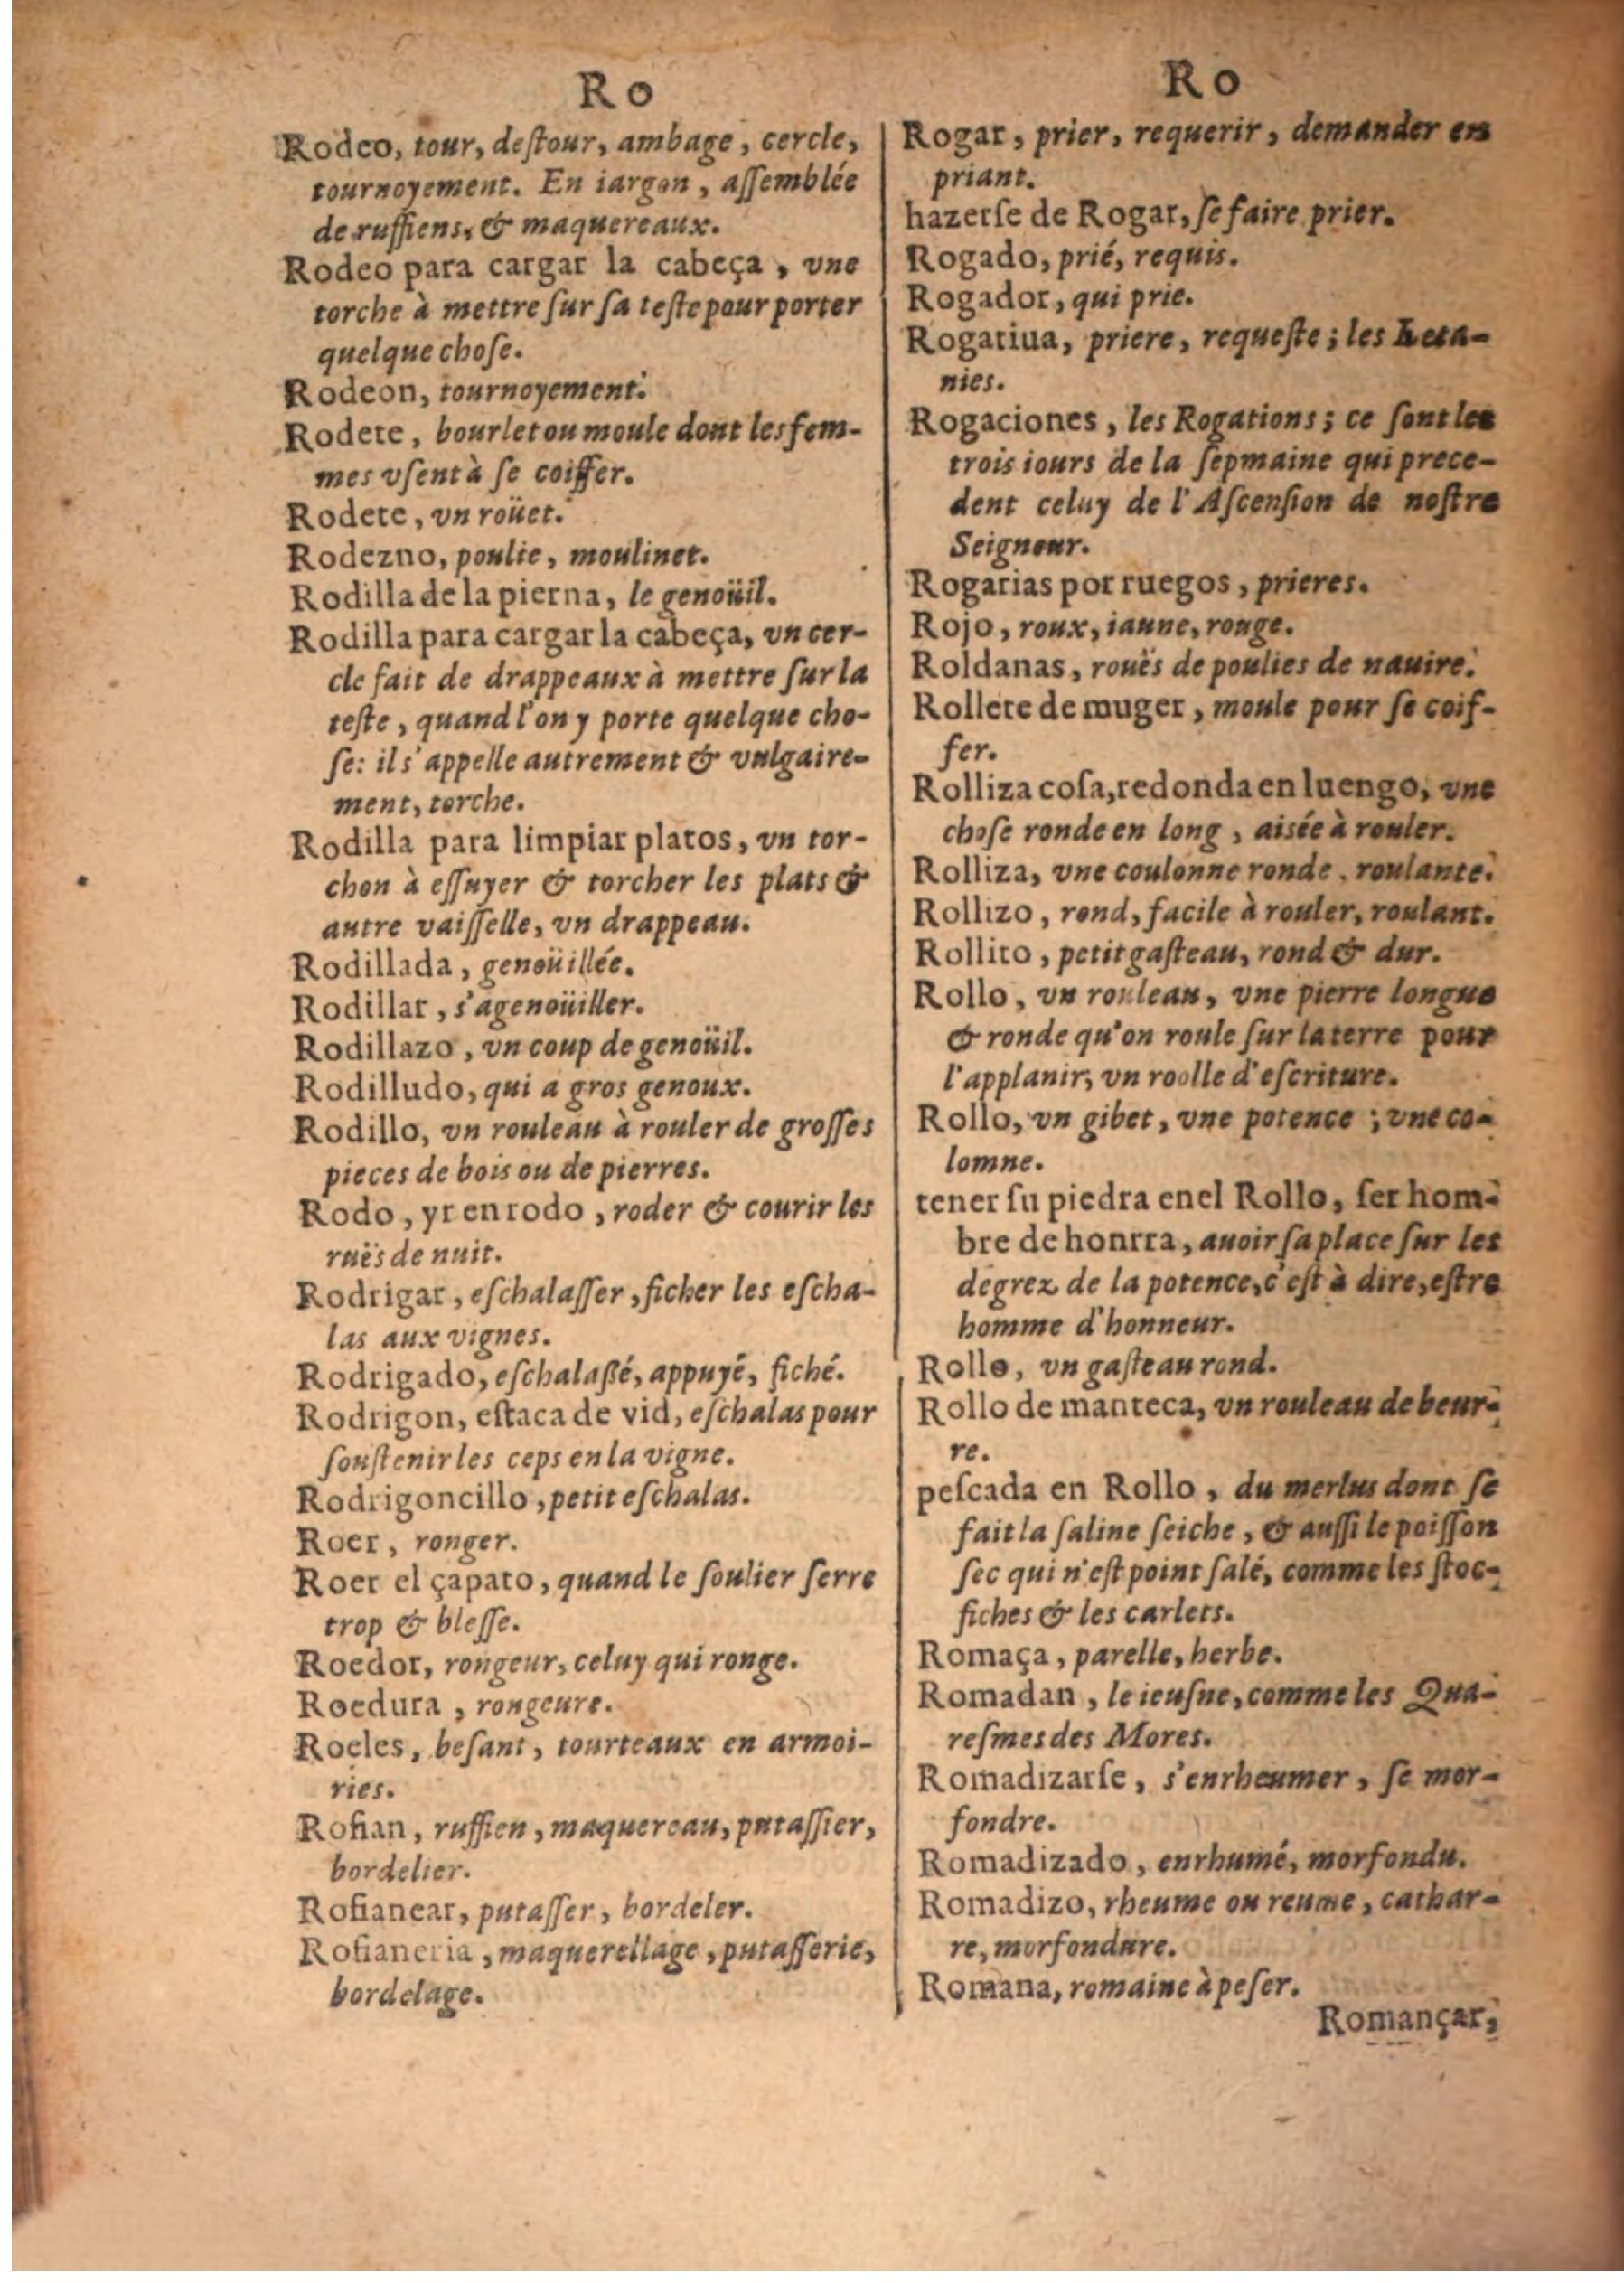 Ro
Rodeo, tour, deſtour, ambage, cercle,
tournoyement. En iargon, aſſemblée
de ruffiens, & maquereaux.
Rodeo para cargar la cabeça, vne
torche à mettre ſur ſa teſte pour porter
quelque choſe.
Rodeon, tournoyement.
Rodete, bourlet ou moule dont les fem-
mes vſent à ſe coiffer.
Rodete, vn roüet.
Rodezno, poulie, moulinet.
Rodilla de la pierna, le genoüil.
Rodilla para cargar la cabeça, vn cer-
cle fait de drappeaux à mettre ſur la
teſte, quand l'on y porte quelque cho-
ſe: il s'appelle autrement & vulgaire-
ment, torche.
Rodilla para limpiar platos, vn tor-
chon à eſſuyer & torcher les plats &
autre vaiſſelle, vn drappeau.
Rodillada, genoüillée.
Rodillar, s'agenoüiller.
Rodillazo, vn coup de genoüil.
Rodilludo, qui a gros genoux.
Rodillo, vn rouleau à rouler de groſſes
pieces de bois ou de pierres.
Rodo, yr en rodo, roder & courir les
ruës de nuit.
Rodrigar, eſchalaſſer, ficher les eſcha-
las aux vignes.
Rodrigado, eſchalaßé, appuyé, fiché.
Rodrigon, eſtaca de vid, eſchalas pour
ſouſtenir les ceps en la vigne.
Rodrigoncillo, petit eſchalas.
Roer, ronger.
Roer el çapato, quand le ſoulier ſerre
trop & bleſſe.
Roedor, rongeur, celuy qui ronge.
Roedura, rongeure.
Roeles, beſant, tourteaux en armoi-
ries.
Rofian, ruffien, maquereau, putaſſier,
bordelier.
Rofianear, putaſſer, bordeler.
Rofianeria, maquerellage, putaſſerie,
bordelage.
Ro
Rogar, prier, requerir, demander en
priant.
hazerſe de Rogar, ſe faire prier.
Rogado, prié, requis.
Rogador, qui prie.
Rogatiua, priere, requeſte; les Leta-
nies.
Rogaciones, les Rogations; ce ſont les
trois iours de la ſepmaine qui prece-
dent celuy de l'Aſcenſion de noſtre
Seigneur.
Rogarias por ruegos, prieres.
Rojo, roux, iaune, rouge.
Roldanas, rouës de poulies de nauire.
Rollete de muger, moule pour ſe coif-
fer.
Rolliza coſa, redonda en luengo, vne
choſe ronde en long, aisée à rouler.
Rolliza, vne coulonne ronde, roulante.
Rollizo, rond, facile à rouler, roulant.
Rollito, petit gaſteau, rond & dur.
Rollo, vn rouleau, vne pierre longue
& ronde qu'on roule ſur la terre pour
l'applanir, vn roolle d'eſcriture.
Rollo, vn gibet, vne potence; vne co-
lomne.
tener ſu piedra enel Rollo, ſer hom-
bre de honrra, auoir ſa place ſur les
degrez de la potence, c'eſt à dire, eſtre
homme d'honneur.
Rollo, vn gaſteau rond.
Rollo de manteca, vn rouleau de beur-
re.
peſcada en Rollo, du merlus dont ſe
fait la ſaline ſeiche, & auſſi le poiſſon
ſec qui n'eſt point ſalé, comme les ſtoc-
fiches & les carlets.
Romaça, parelle, herbe.
Romadan, le ieuſne, comme les Qua-
reſmes des Mores.
Romadizarſe, s'enrheumer, ſe mor-
fondre.
Romadizado, enrhumé, morfondu.
Romadizo, rheume ou reume, cathar-
re, morfondure.
Romana, romaine à peſer.
Romançar,